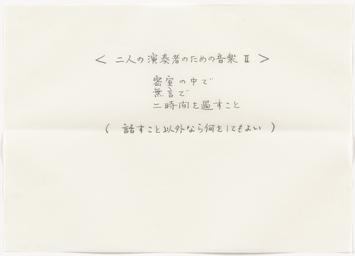 < 二人の演奏者のための音楽 Ⅱ >
密室の中で
無言で
二時間を過すこと
( 話すこと以外なら何をしてもよい )